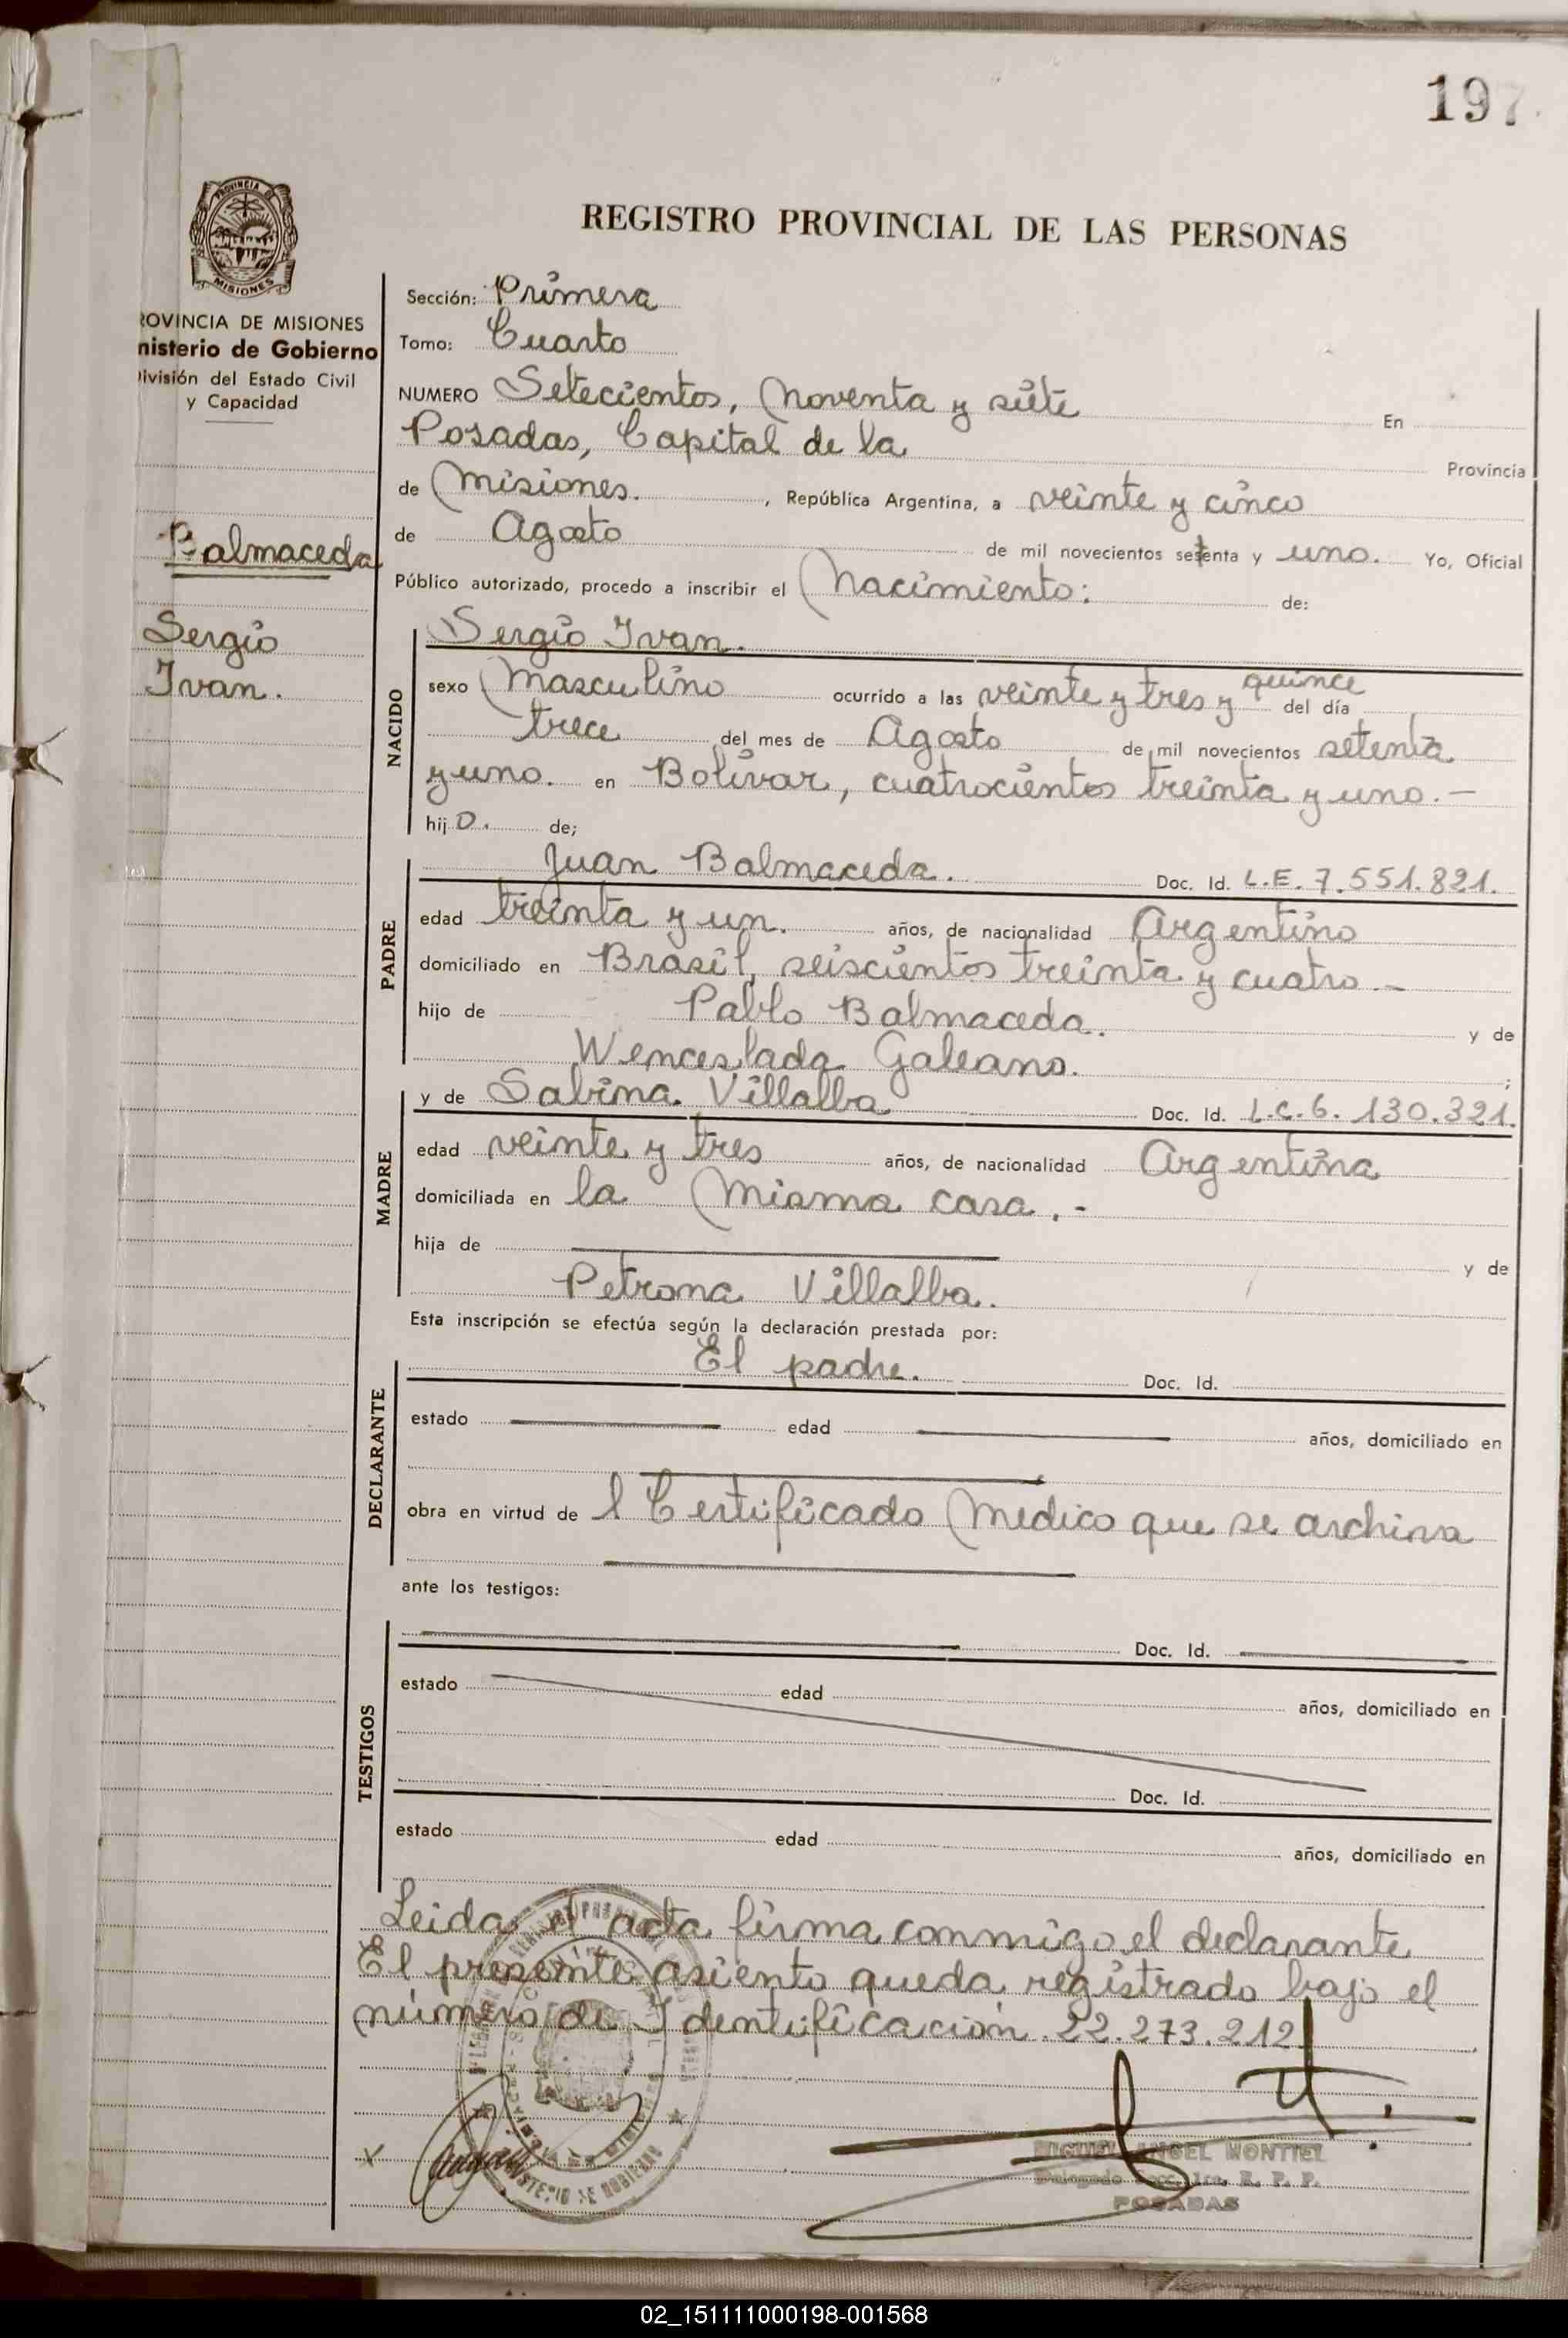 197
PROVINCIA DE
MISIONES
REGISTRO PROVINCIAL DE LAS PERSONAS
ROVINCIA DE MISIONES
nisterio de Gobierno
ivisión del Estado Civil
y Capacidad
Balmaceda
Sergio
Ivan.
Sección: Primera
Tomo: Cuarto
NUMERO Setecientos, Noventa y siete En
Posadas, Capital de la Provincia
de Misiones. , República Argentina, a veinte y cinco
de Agosto de mil novecientos setenta y uno. Yo, Oficial
Público autorizado, procedo a inscribir el Nacimiento: de:
NACIDO
Sergio Ivan.
sexo Masculino ocurrido a las veinte y tres y quince del día
trece del mes de Agosto de mil novecientos setenta
y uno. en Bolívar, cuatrocientos treinta y uno.-
hij o. de;
PADRE
Juan Balmaceda. Doc. Id. L.E. 7.551.821.
edad treinta y un. años, de nacionalidad Argentino
domiciliado en Brasil, seiscientos treinta y cuatro.-
hijo de Pablo Balmaceda. y de
Wenceslada Galeano. ;
MADRE
y de Sabina Villalba Doc. Id. L.C.6.130.321.
edad veinte y tres años, de nacionalidad Argentina
domiciliada en la Misma casa.-
hija de y de
Petrona Villalba.
Esta inscripción se efectúa según la declaración prestada por:
DECLARANTE
El padre. Doc. Id.
estado edad años, domiciliado en
obra en virtud de l Certificado Medico que se archiva
ante los testigos:
TESTIGOS
Doc. Id.
estado edad años, domiciliado en
Doc. Id.
estado edad años, domiciliado en
Leida el acta firma conmigo el declarante
El presente asiento queda registrado bajo el
número de Identificación 22.273.212
MINISTERIO DE GOBIERNO
MIGUEL ANGEL MONTIEL
Delegado Secc. 1ra. R. P. P.
POSADAS
02_151111000198-001568